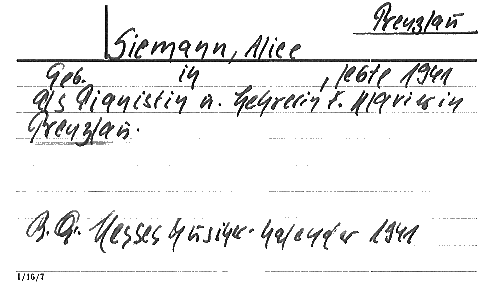 Prenzlau
Siemann, Alice
Geb. in , lebte 1941
als Pianistin u. Lehrerin f. Klavier in
Prenzlau.
Hesses Musiker-Kalender 1941
1/16/7